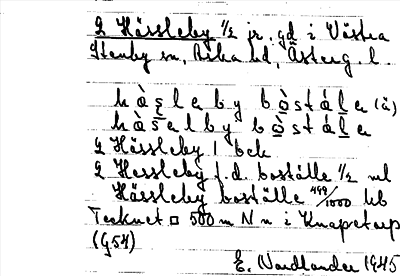 L Hässleby 1/2 jr. gd i Västra
Stenby sn, Aska hd, Österg. l.
hàs̨laby bòstál̲a (ä)
hàs̨alby bòstál̲a
L Hässleby 1 bek
L Hessleby f.d. boställe 1/2 ml
Hässleby boställe 499/1000 kb
Tecknet □ 500 m N n i Knapetorp
(G54)
E. Nordlander 1945